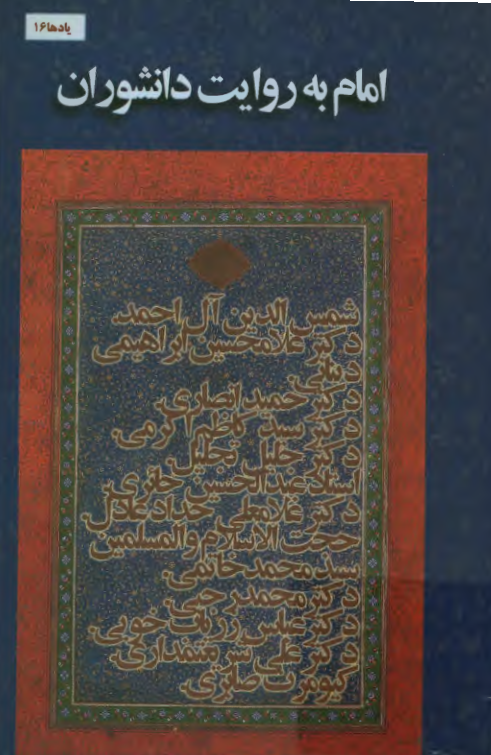 یادها ۱۶
امام به روایت دانشوران
شمس الدین آل احمد.
دکتر غلامحسین ابراهیمی
دینانی.
دکتر حمید انصاری.
دکتر سید کاظم اکرمی.
دکتر جلیل تجلیل.
استاد عبدالحسین حائری.
دکتر غلامعلی حداد عادل.
حجت الاسلام والمسلمین
سید محمد خاتمی.
دکتر محمد رجبی.
دکتر عباس زریاب خویی.
دکتر علی شریعتمداری.
کیومرث صابری.